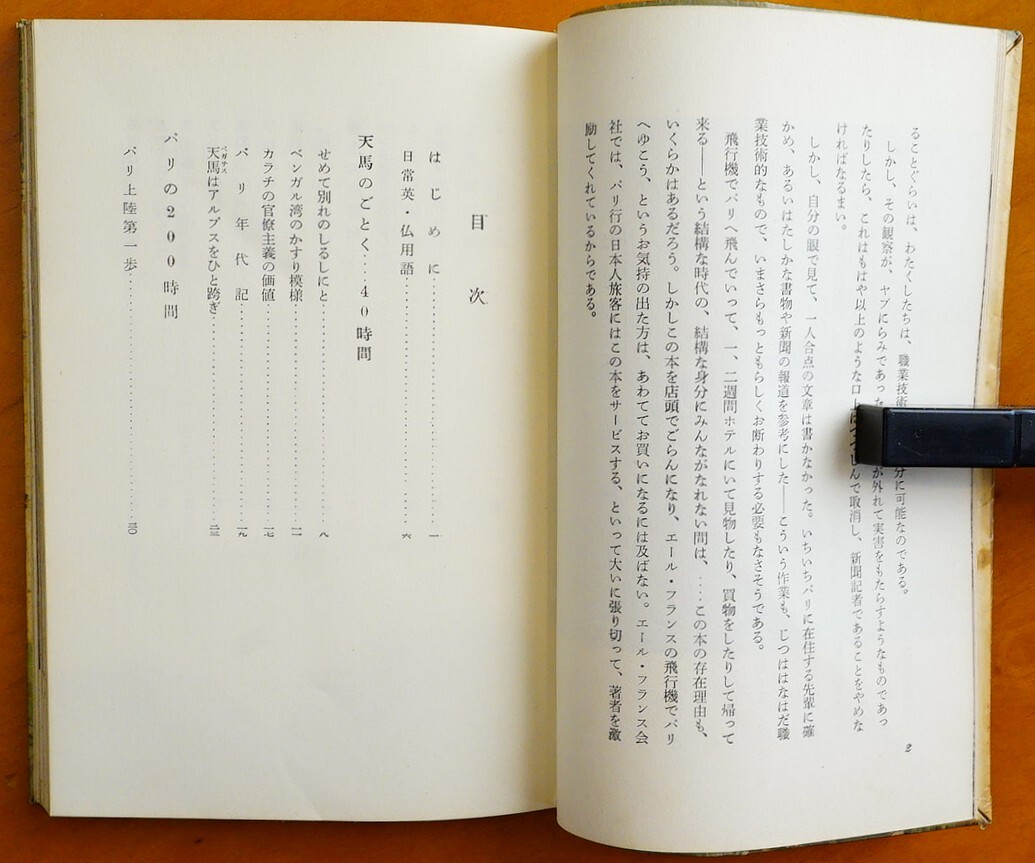 ることぐらいは、わたくしたちは、職業技術分に可能なのである。
しかし、その観察が、ヤブにらみであったが外れて実害をもたらすようなものであっ
たりしたら、これはもはや以上のような口んで取消し、新聞記者であることをやめな
ければなるまい。
しかし、自分の眼で見て、一人合点の文章は書かなかった。いちいちパリに在住する先輩に確
かめ、あるいはたしかな書物や新聞の報道を参考にした――こういう作業も、じつははなはだ職
業技術的なもので、いまさらもっともらしくお断わりする必要もなさそうである。
飛行機でパリへ飛んでいって、一、二週間ホテルにいて見物したり、買物をしたりして帰って
来る――という結構な時代の、結構な身分にみんながなれない間は、‥‥この本の存在理由も、
いくらかはあるだろう。しかしこの本を店頭でごらんになり、エール・フランスの飛行機でパリ
へゆこう、というお気持の出た方は、あわててお買いになるには及ばない。エール・フランス会
社では、パリ行の日本人旅客にはこの本をサービスする、といって大いに張り切って、著者を激
励してくれているからである。
2
目次
はじめに…………一
日常英・仏用語…………六
天馬のごとく‥‥40時間
せめて別れのしるしにと…………八
ベンガル湾のかすり模様…………一一
カラチの官僚主義の価値…………一七
パリ年代記…………一九
天馬はアルプスをひと跨ぎ…………二三
ペガサス
パリの200時間
パリ上陸第一歩…………三〇